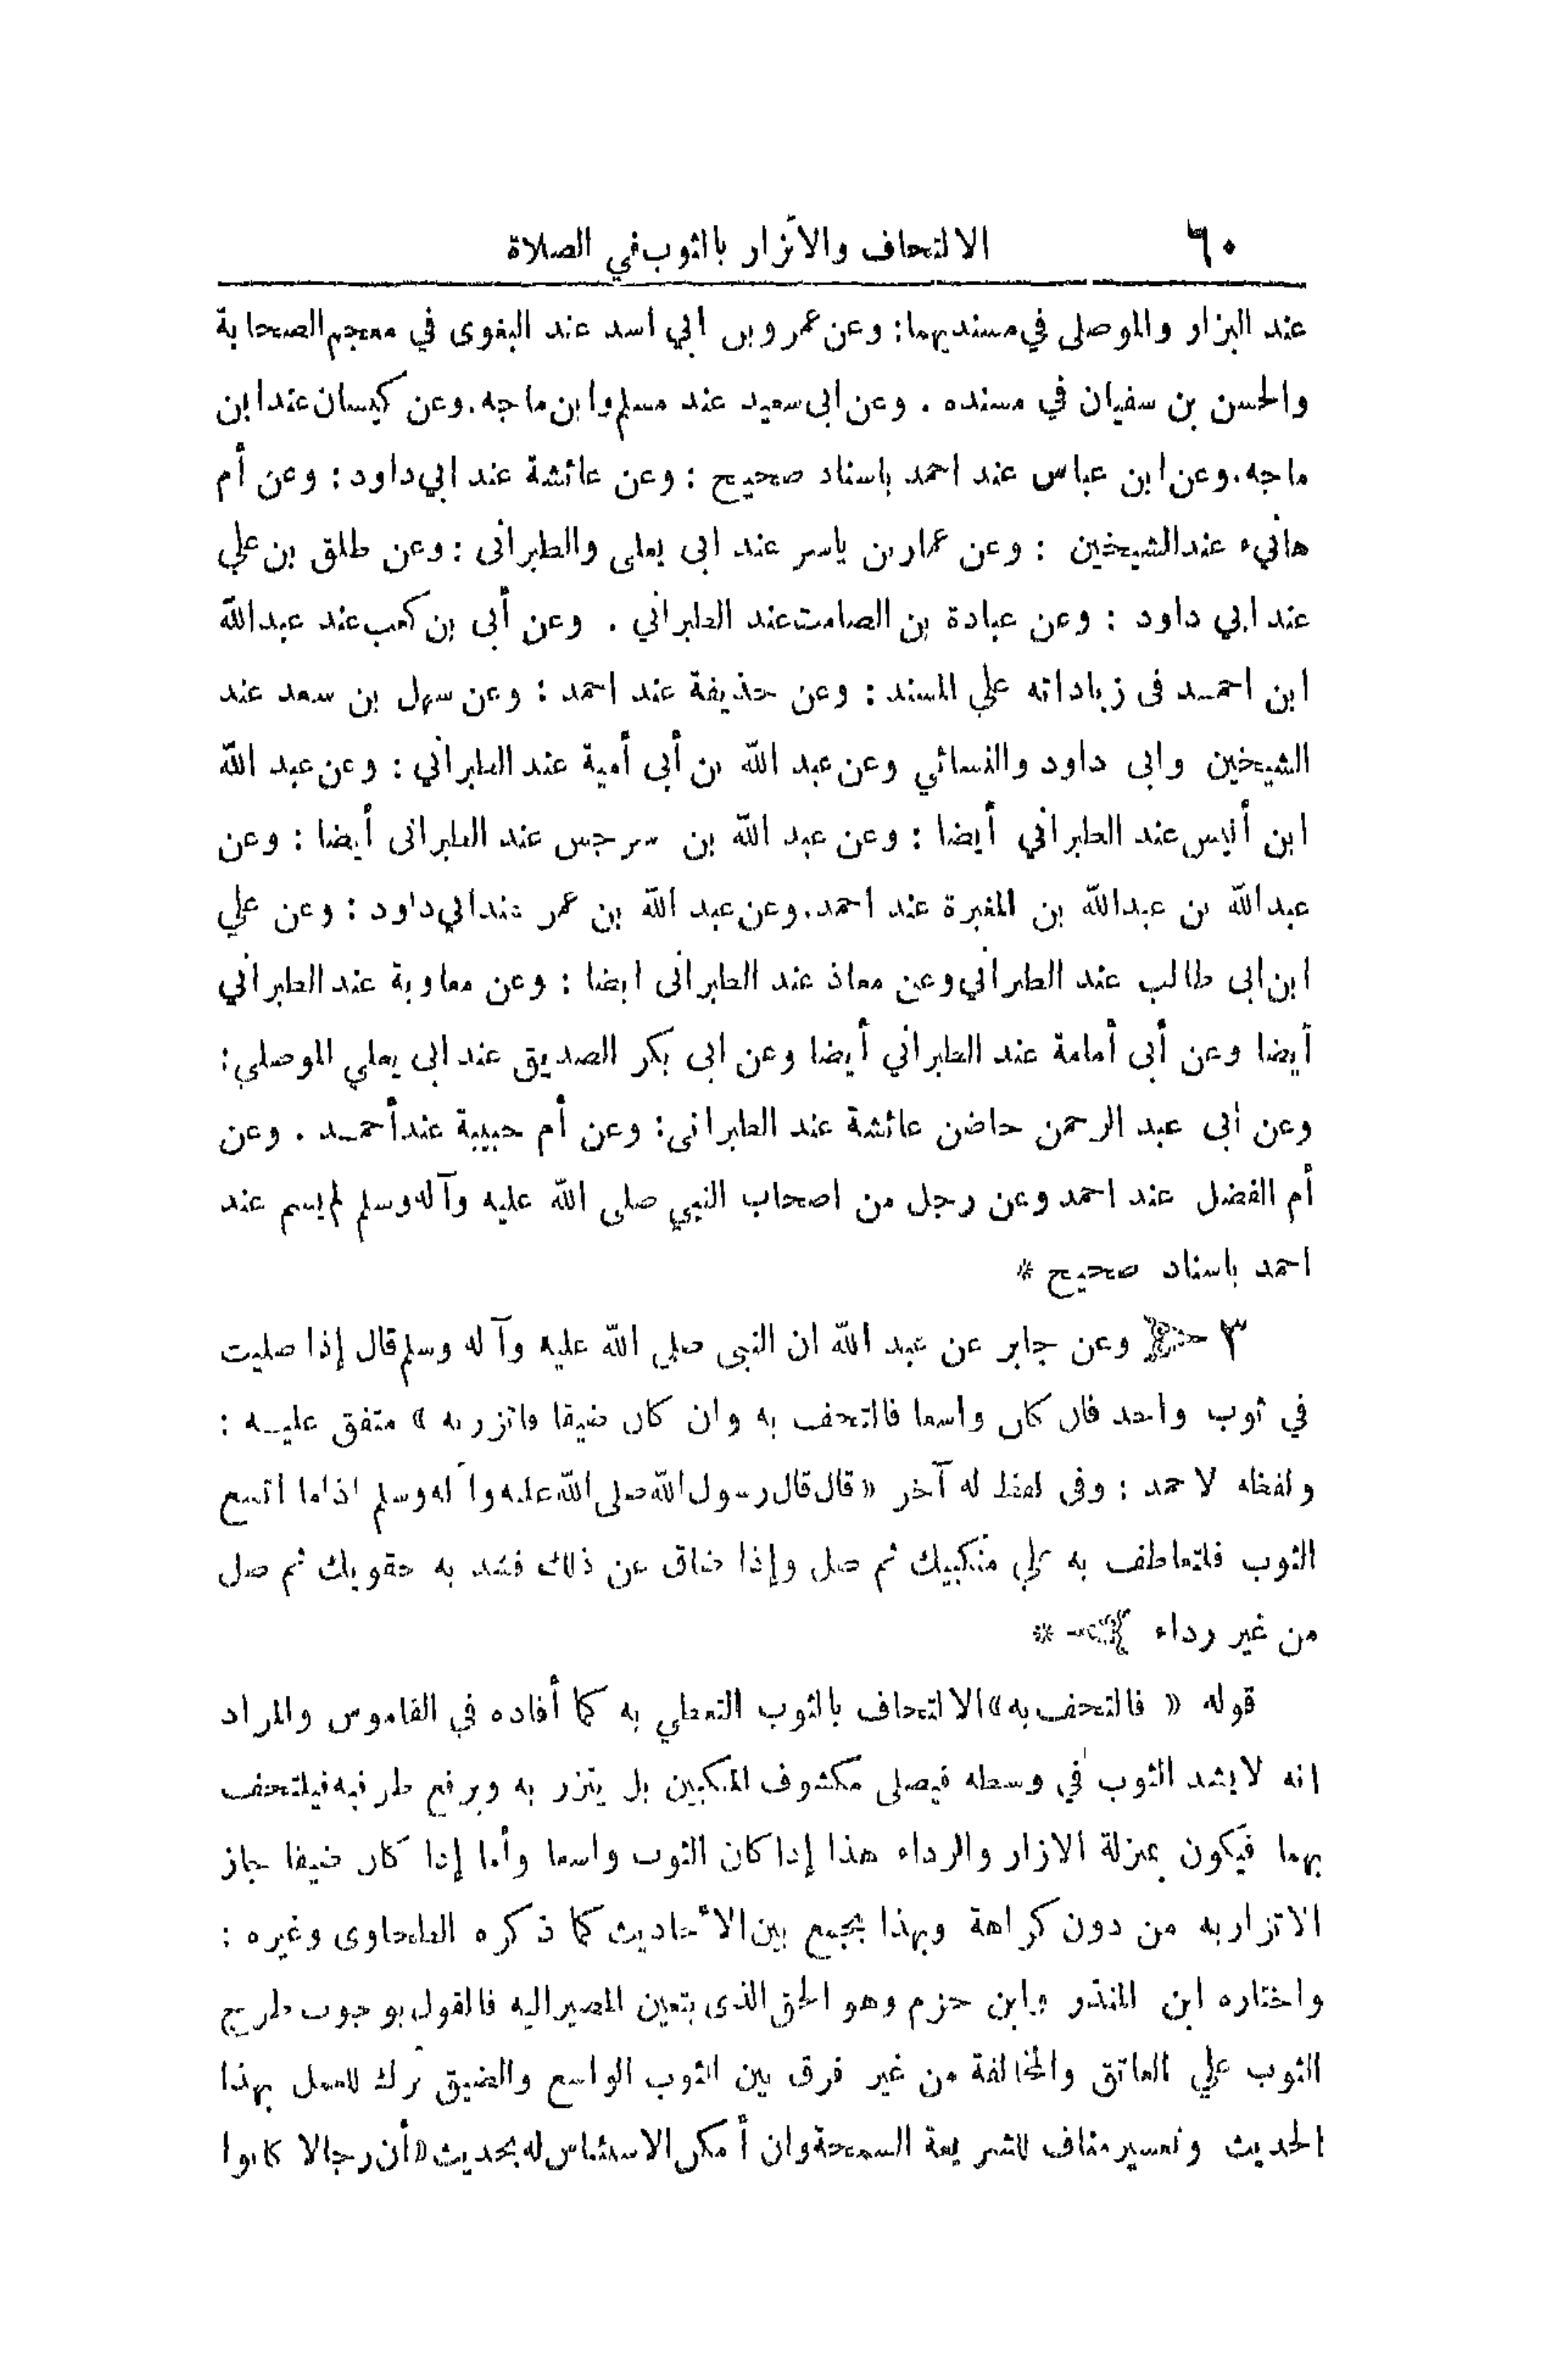 ٦٠ الالتحاف والاتزار بالثوب في الصلاة
عند البزار والموصلى في مسنديهما: وعن عمرو بن ابي اسد عند البغوى في معجم الصحابة
والحسن بن سفيان في مسنده . وعن ابى سعيد عند مسلم وابن ماجه. وعن كيسان عند ابن
ماجه. وعن ابن عباس عند احمد باسناد صحيح : وعن عائشة عند ابي داود : وعن أم
هانيء عند الشيخين : وعن عمار بن ياسر عند ابى يعلى والطبرانى : وعن طلق بن علي
عند ابي داود : وعن عبادة بن الصامت عند الطبراني . وعن أبى بن كعب عند عبد الله
ابن احمـد فى زياداته علي المسند : وعن حذيفة عند احمد : وعن سهل بن سعد عند
الشيخين وابى داود والنسائي وعن عبد الله بن أبى أمية عند الطبراني : وعن عبد الله
ابن أنيس عند الطبراني أيضا : وعن عبد الله بن سرجس عند الطبرانى أيضا : وعن
عبد الله بن عبد الله بن المغيرة عند احمد. وعن عبد الله بن عمر عند ابي داود : وعن علي
ابن ابى طالب عند الطبراني وعن معاذ عند الطبرانى ايضا : وعن معاوية عند الطبراني
أيضا وعن أبى أمامة عند الطبراني أيضا وعن ابى بكر الصديق عند ابى يعلي الموصلي :
وعن أبى عبد الرحمن حاضن عائشة عند الطبرانى : وعن أم حبيبة عند أحمـد . وعن
أم الفضل عند احمد وعن رجل من اصحاب النبي صلى الله عليه وآله وسلم لم يسم عند
احمد باسناد صحيح *
٣ وعن جابر عن عبد الله ان النبى صلى الله عليه وآله وسلم قال إذا صليت
في ثوب واحد فان كان واسعا فالتحف به وان كان ضيقا فاتزر به » متفق عليـه :
ولفظه لاحمد : وفى لفظ له آخر « قال قال رسول الله صلى الله عليه وآله وسلم اذا ما اتسع
الثوب فلتعاطف به على منكبيك ثم صل وإذا ضاق عن ذلك فشد به حقويك ثم صل
من غير رداء *
قوله « فالتحف به » الالتحاف بالثوب التغطي به كما أفاده في القاموس والمراد
انه لا يشد الثوب في وسطه فيصلى مكشوف المنكبين بل يتزر به ويرفع طرفيه فيلتحف
بهما فيكون بمنزلة الازار والرداء هذا إذا كان الثوب واسعا وأما إذا كان ضيقا جاز
الاتزار به من دون كراهة وبهذا يجمع بين الأحاديث كما ذكره الطحاوى وغيره :
واختاره ابن المنذر وابن حزم وهو الحق الذى يتعين المصير اليه فالقول بوجوب طرح
الثوب علي العاتق والمخالفة من غير فرق بين الثوب الواسع والضيق ترك للعمل بهذا
الحديث وتعسير مناف للشريعة السمحة وان أمكن الاستئناس له بحديث « أن رجالا كانوا